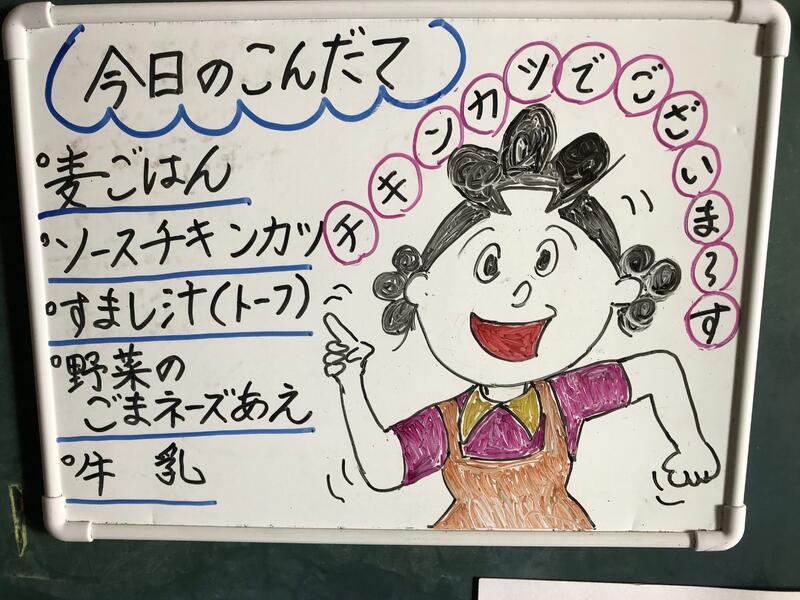 今日のこんだて
麦ごはん
ソースチキンカツ
すまし汁(トーフ)
野菜の
ごまネーズあえ
牛乳
チキンカツでございま〜す